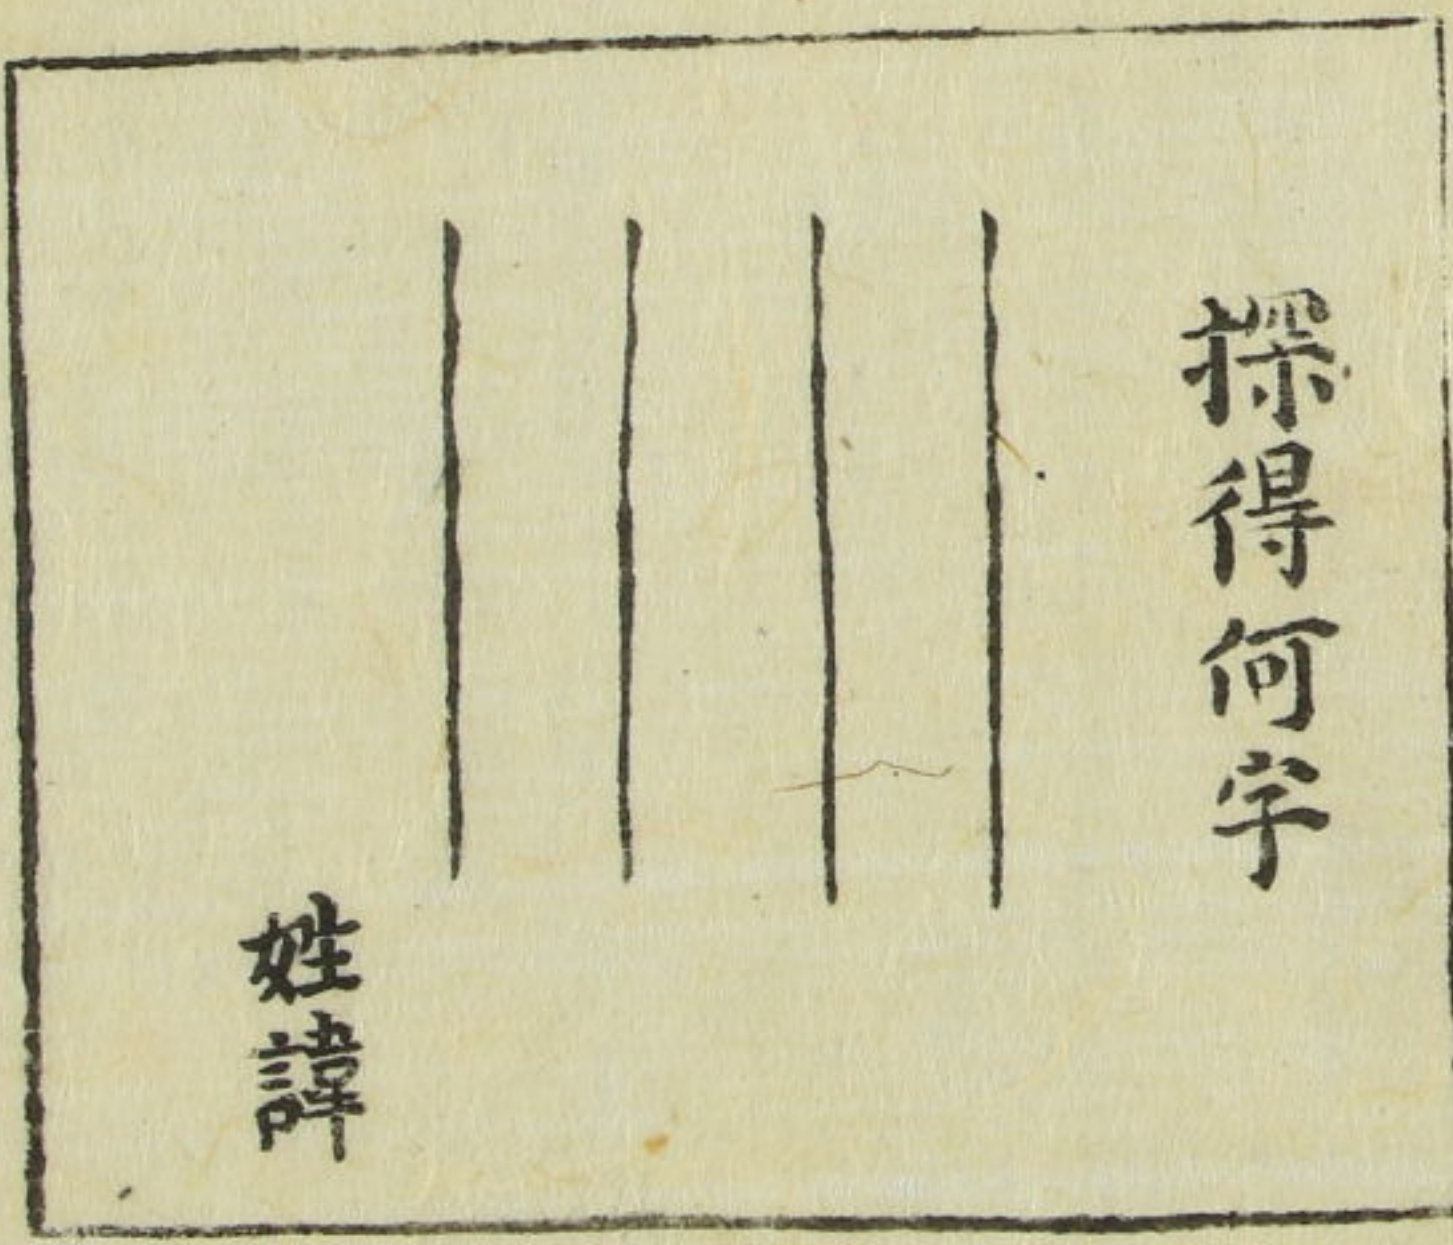 探得何字
姓諱